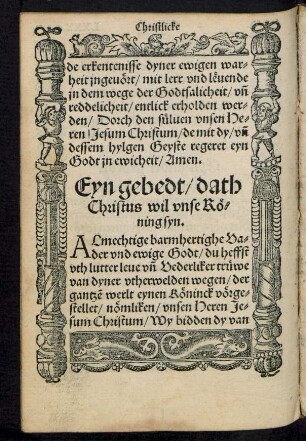 Christlicke
de erkentenisse dyner ewigen war-
heit jngeuört/ mit lere vnd léuende
jn dem wege der Godtsalicheit/ vñ
reddelicheit/ entlick erholden wer-
den/ Dorch den süluen vnsen He-
ren Jesum Christum/ de mit dy/ vñ
dessem hylgen Geyste regeret eyn
Godt jn ewicheit/ Amen.
Eyn gebedt/ dath
Christus wil vnse Kö-
ning syn.
ALmechtige barmhertighe Va-
der vnd ewige Godt/ du heffst
vth lutter leue vñ Vederliker trüwe
van dyner vtherwelden wegen/ der
gantze werlt eynen Köninck vörge-
stellet/ nömliken/ vnsen Heren Je-
sum Christum/ Wy bidden dy van